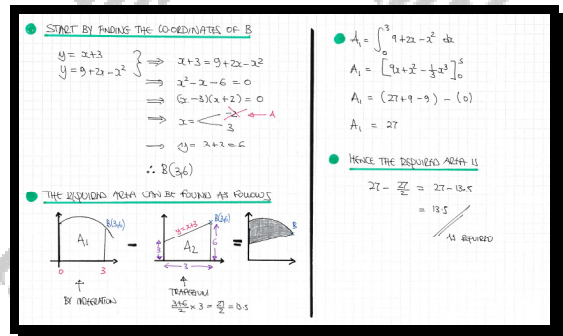 START BY FINDING THE CO-ORDINATES OF B
y = x+3
y = 9+2x-x²
⇒ x+3 = 9+2x-x²
⇒ x²-x-6 = 0
⇒ (x-3)(x+2) = 0
⇒ x = -2 ← A
3
⇒ y = 3+3 = 6
∴ B(3,6)
THE REQUIRED AREA CAN BE FOUND AS FOLLOWS
B(3,6)
A₁
0 3
↑
BY INTEGRATION
-
y=x+3
B(3,6)
A₂
3
6
3
↑
TRAPEZIUM
3+6/2 × 3 = 27/2 = 13.5
=
B
A₁ = ∫₀³ 9+2x-x² dx
A₁ = [9x+x²-⅓x³]₀³
A₁ = (27+9-9) - (0)
A₁ = 27
HENCE THE REQUIRED AREA IS
27 - 27/2 = 27-13.5
= 13.5
AS REQUIRED